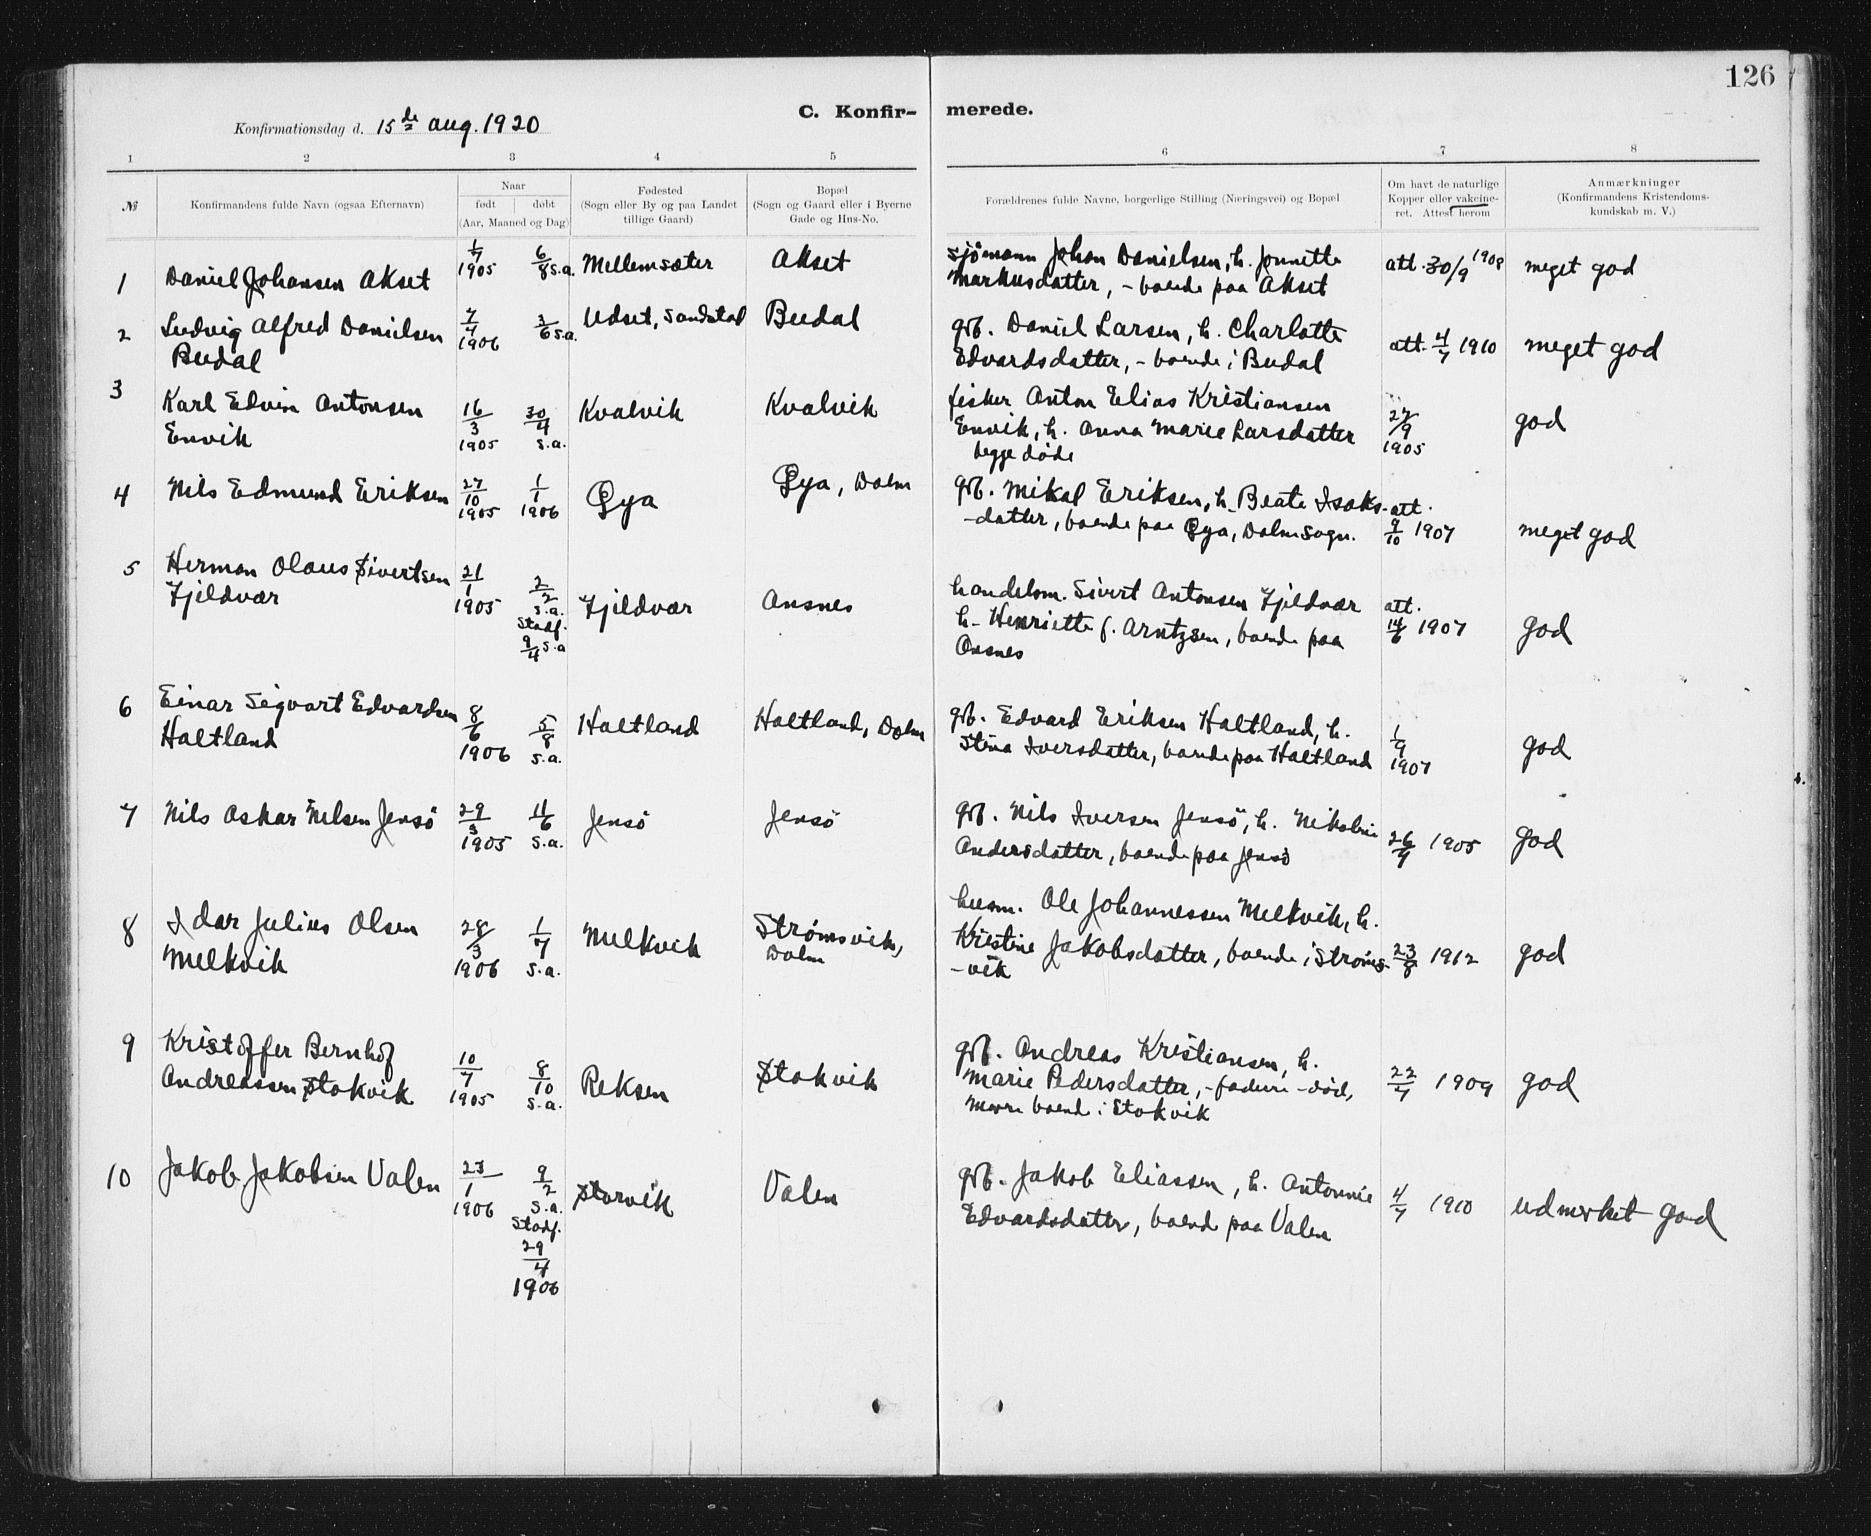 126
C. Konfir- merede.
Konfirmationsdag d. 15de aug. 1920
1 2 3 4 5 6 7 8
№
Konfirmandens fulde Navn (ogsaa Efternavn)
Naar
født døbt
(Aar, Maaned og Dag)
Fødested
(Sogn eller By og paa Landet
tillige Gaard)
Bopæl
(Sogn og Gaard eller i Byerne
Gade og Hus-No.
Forældrenes fulde Navne, borgerlige Stilling (Næringsvei) og Bopæl
Om havt de naturlige
Kopper eller vakcine-
ret. Attest herom
Anmærkninger
(Konfirmandens Kristendoms-
kundskab m. V.)
1 Daniel Johansen Akset
1/7 1905
6/8 s.a.
Mellemsæter
Akset
sjømann Johan Danielsen, h. Jonnette
Markusdatter, - boende paa Akset
att. 30/9 1908
meget god
2 Ludvig Alfred Danielsen
Budal
7/4 1906
3/6 s.a.
Udset, Sandstad
Budal
gbr. Daniel Larsen, h. Charlotte
Edvardsdatter, - boende i Budal
att. 4/7 1910
meget god
3 Karl Edvin Antonsen
Envik
16/3 1905
30/4 s.a.
Kvalvik
Kvalvik
fisker Anton Elias Kristiansen
Envik, h. Anna Marie Larsdatter
begge døde
27/9 1905
god
4 Nils Edmund Eriksen
27/10 1905
1/1 1906
Gya
Gya, Dolm
gbr. Mikal Eriksen, h. Beate Isaks-
-datter, boende paa Gya, Dolm sogn.
att.
9/10 1907
meget god
5 Herman Olaus Sivertsen
Fjildvær
21/1 1905
2/2 s.a.
Stadf.
9/4 s.a
Fjildvær
Ansnes
handelsm. Sivert Antonsen Fjildvær
h. Henriette f. Arntzsen, boende paa
Ansnes
att.
14/6 1907
god
6 Einar Sigvart Edvardsen
Haltland
8/6 1906
5/8 s.a.
Haltland
Haltland, Dolm
gbr. Edvard Eriksen Haltland, h.
Stina Iversdatter, boende paa Haltland
1/9 1907
god
7 Nils Oskar Nilsen Jensø
29/3 1905
11/6 s.a.
Jensø
Jensø
gbr. Nils Iversen Jensø, h. Nikoline
Andersdatter, boende paa Jensø
26/9 1905
god
8 Idar Julius Olsen
Melkvik
28/3 1906
1/7 s.a.
Melkvik
Strømsvik,
Dolm
husm. Ole Johannessen Melkvik, h.
Kristine Jakobsdatter, boende i Strøms-
-vik
23/8 1912
god
9 Kristoffer Bernhof
Andreassen Stokvik
10/7 1905
8/10 s.a.
Reksen
Stokvik
gbr. Andreas Kristiansen, h.
Marie Pedersdatter, - faderen død,
moren boende i Stokvik
22/7 1909
god
10 Jakob Jakobsen Valen
23/1 1906
9/2 s.a.
Stadf.
29/4 1906
Storvik
Valen
gbr. Jakob Eliassen, h. Antonnie
Edvardsdatter, boende paa Valen
4/7 1910
udmerket god